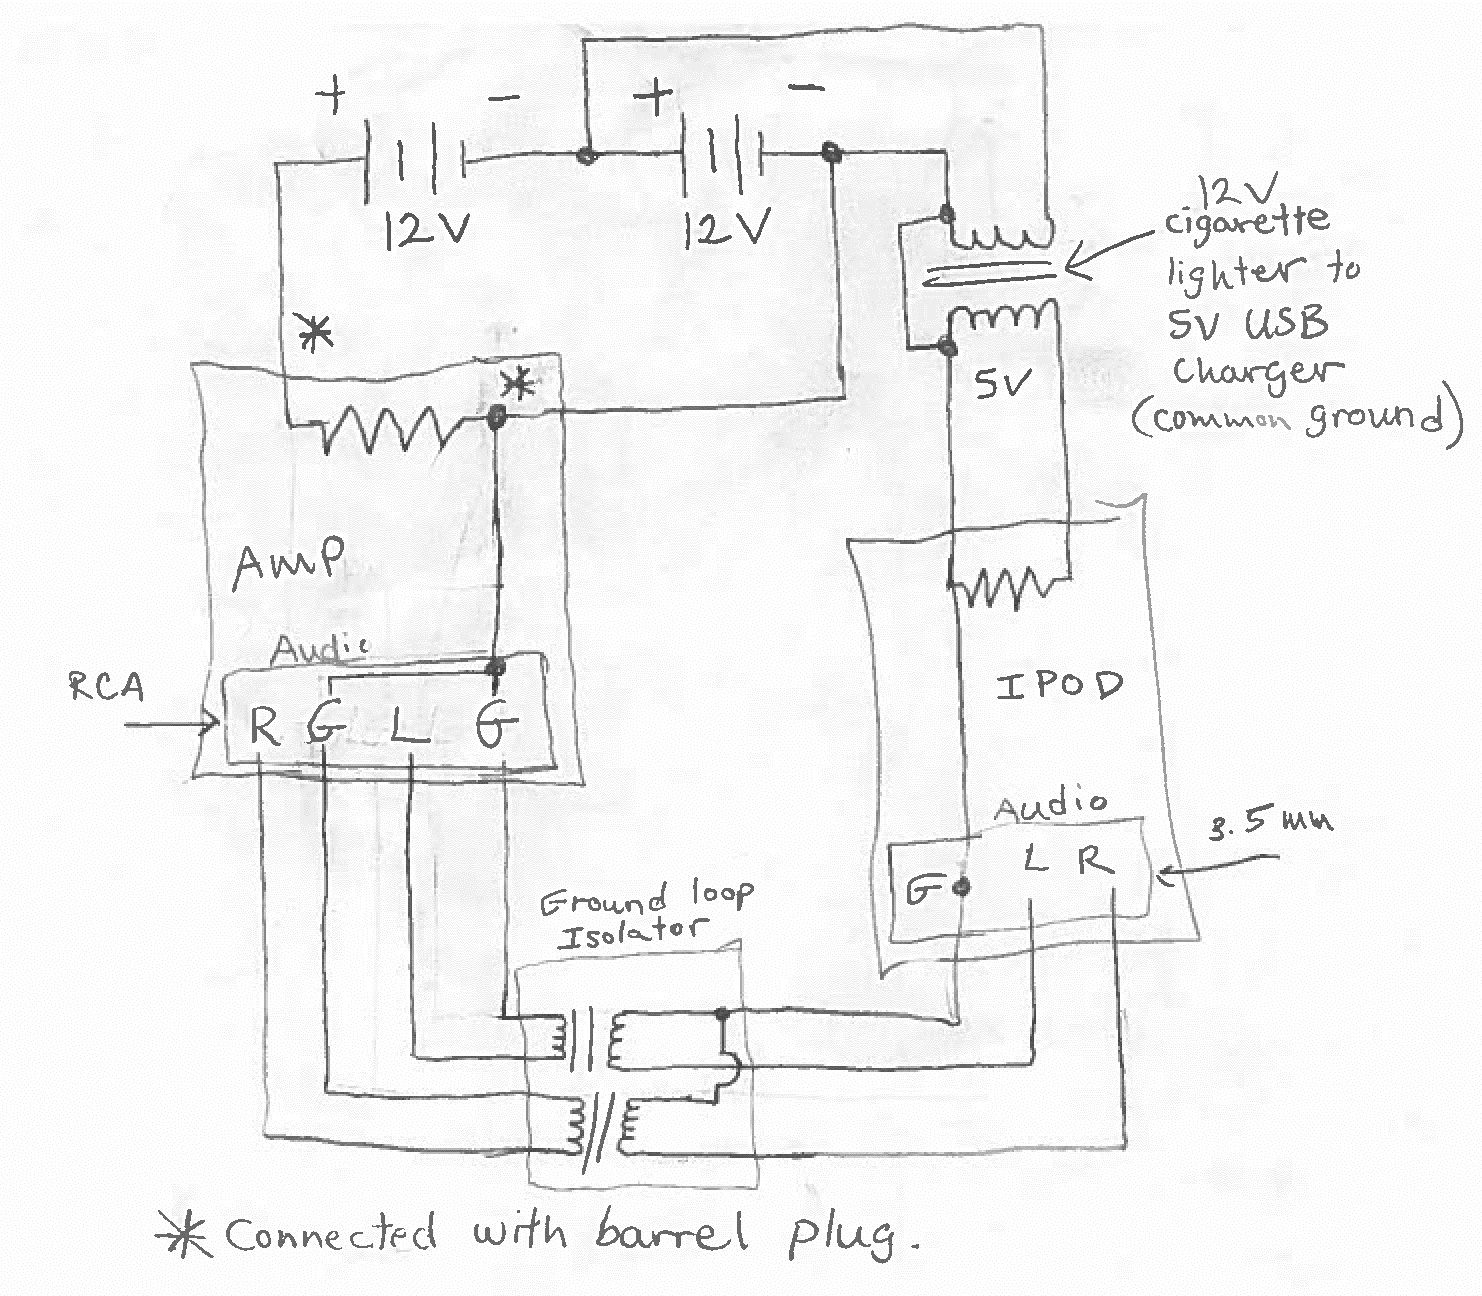 + - + -
12V 12V
12V
cigarette
lighter to
5V USB
charger
(common ground)
*
*
5V
AMP
Audio
RCA
R G L G
IPOD
Audio
3.5 mm
G L R
Ground loop
Isolator
* Connected with barrel plug.